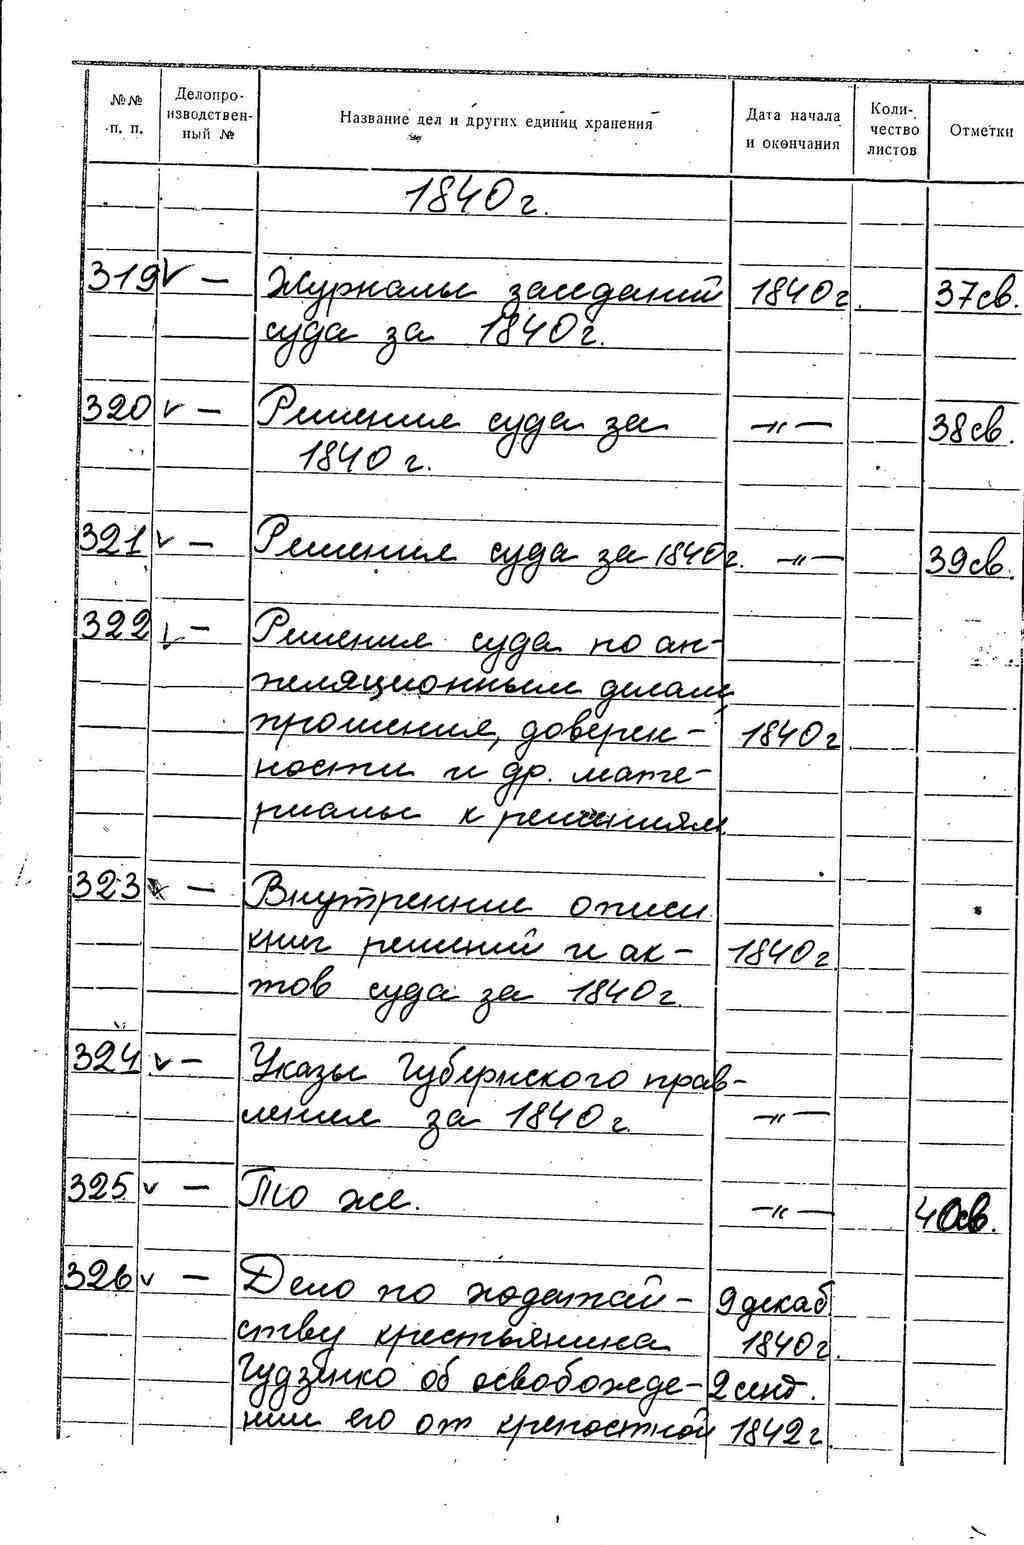 №№ п. п.
Делопро-
изводствен-
ный №
Название дел и других единиц хранения
Дата начала
и окончания
Коли-
чество
листов
Отметки
1840 г.
319 v — Журналы заседаний 1840 г. 37 св.
суда за 1840 г.
320 v — Решения суда за —"— 38 св.
1840 г.
321 v — Решения суда за 1840 г. —"— 39 св.
322 v — Решения суда по ап-
пеляционным делам,
прошения, доверен- 1840 г.
ности и др. мате-
риалы к решениям
323 — Внутренние описи
книг решений и ак- 1840 г.
тов суда за 1840 г.
324 v — Указы Губернского прав-
ления за 1840 г. —"—
325 v — То же. —"— 40 св.
326 v — Дело по ходатай- 9 декаб
ству крестьянина 1840 г.
Гудзенко об освобожде- 2 сент.
нии его от крепостной 1842 г.